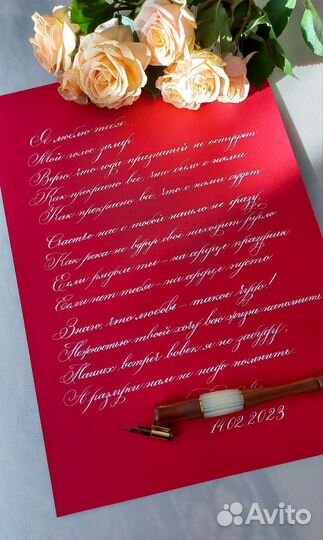 Я люблю тебя.
Мой голос замер.
Верю, что года признаний не остудят
Как прекрасно все, что было с нами
Как прекрасно все, что с нами будет
Счастье нас с тобой нашло не сразу,
Как река не вдруг свое находит русло
Если рядом ты – на сердце праздник
Если нет тебя – на сердце пусто
Знаю, что любовь – такое чудо!
Нежностью твоей хочу всю жизнь наполнить
Наших встреч вовек я не забуду,
А разлуки нам не надо помнить.
14.02.2023
Avito